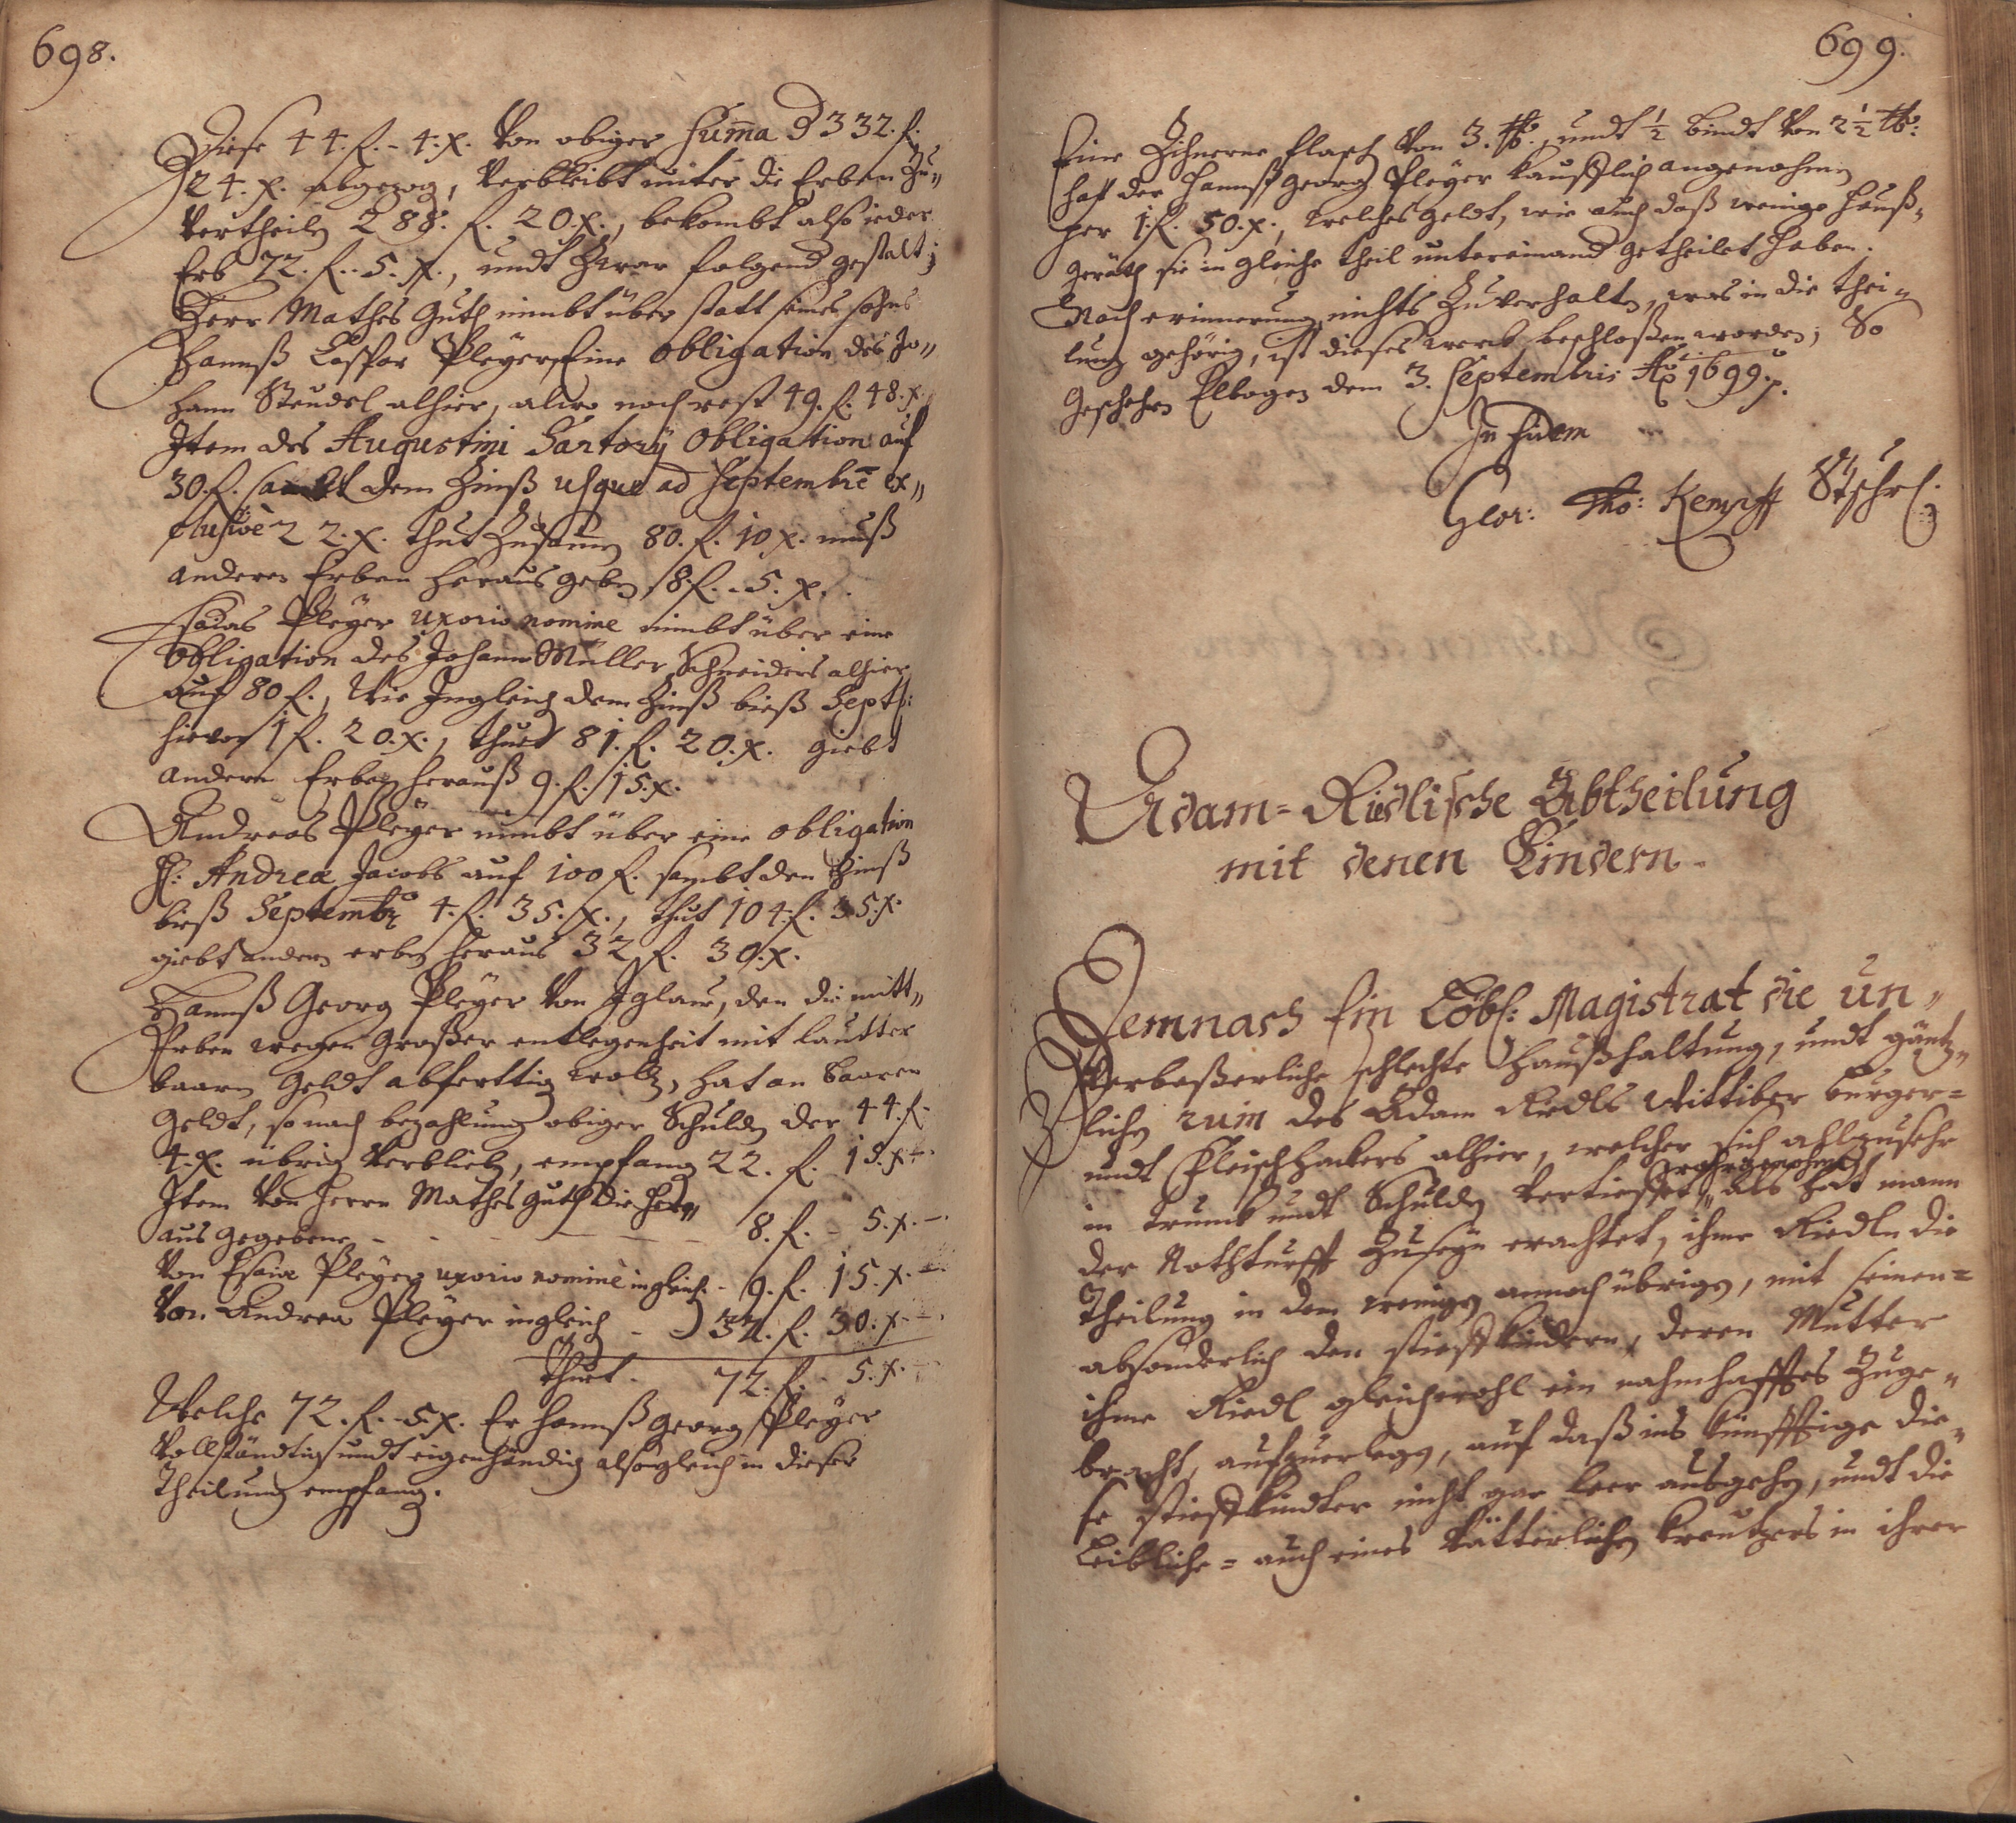 698.
Diese 44. f. - 4. x. Von obiger Suma d 332. f.
24. x. abgezog, Verbleibt unter die Erben Zu„
Vertheilen 288. f. 20 x., bekombt also ieder
Erb 72. f. - 5. x., undt Zwar folgend gestalt;
Herr Mathes Guth nimbt über statt seines sohns
Hannß Caspar Pleyers Eine obligation des Jo„
hann Steudel alhier, alwo noch rest 49. f. 48. x.
Item des Augustini Sartorÿ Obligation auf
30. f. sambt dem Zinß usque ad Septembrē ex„
clusivè 22. x. thut Zusamen 80. f. 10 x. muß
anderen Erben heraus geben 8 f. - 5. x.
Esaias Pleÿer uxorio nomine nimbt über eine
Obligation des Johann Müller Schneiders alhier
auf 80 f., Wie Ingleich dem Zinß bieß Sept:
hievon 1 f. 20. x., thuet 81. f. 20. x. giebt
andern Erben herauß 9. f. 15. x.
Andreas Pleÿer nimbt über eine obligation
H: Andreæ Jacobs auf 100 f. sambt den Zinß
bieß Septemb. 4. f. 35. x., thut 104. f. 35. x.
giebt andern erben heraus 32 f. 30. x.
Hannß Georg Pleÿer Von Iglau, den die mitt„
Erben wegen Großer entlegenheit mit lautter
baaren Geldt abferttig wollen, hat an Baaren
Geldt, so nach bezahlung obiger Schulden der 44. f.
4. x. übrig Verblieben, empfangen 22. f. 15. x.
Item Von Herrn Mathes Guth die her„
aus gegebene - - - - 8. f. - 5. x. -
Von Esaiæ Pleyer uxorio nominè ingleich - 9. f. 15. x. -
Von Andrea Pleÿer ingleich - 32. f. 30. x. -
Thuet - 72. f. - 5. x. -
Welche 72. f. - 5. x. Er Hannß Georg Pleÿer
Vollständtig undt eigenhändig alsogleich in dieser
Theilung empfang.
699.
Eine Zihnerne flasch Von 3. ℔., undt ½ bindt Von 2 ½ ℔:
hatt der Hannß Georg Pleÿer Kaufflich angenohmen
per 1. f. 50. x., welches geldt, wie auch daß wenige hauß„
geräth sie in gleiche theil untereinand getheilet haben.
Nach erinnerung nichts Zuverhalten, was in die thei„
lung gehörig, ist dieses werck beschloßen worden; So
Geschehen Elbogen dem 3. Septembris Ao 1699. p.
In fidem
Geor: Tho: Kempff Stschr:
Adam-Riedlische Abtheilung
mit denen Kindern.
Demnach Ein Löbl: Magistrat die un„
Verbeßerliche schlechte Haußhaltung, undt gäntz„
lichen ruin des Adam Riedls Wittiber burger-
undt Fleischhackers alhier, welcher sich allzusehr
in trunck undt Schulden Vertieffet, wahrgenohmen, Als hat mann
der Nothturfft Zuseyn erachtet, ihme Riedln die
Theilung in dem wenigen annoch übrigen, mit seinen-
absonderlich den stieffkindern, deren Mutter
ihme Riedl gleichwohl ein nahmhafftes Zuge„
bracht, aufzuerlegen, auf daß ins künfftige die„
se stieffkindter nicht gar leer ausgehen, undt die
Leibliche- auch eines Vätterlichen Kreutzers in ihrer